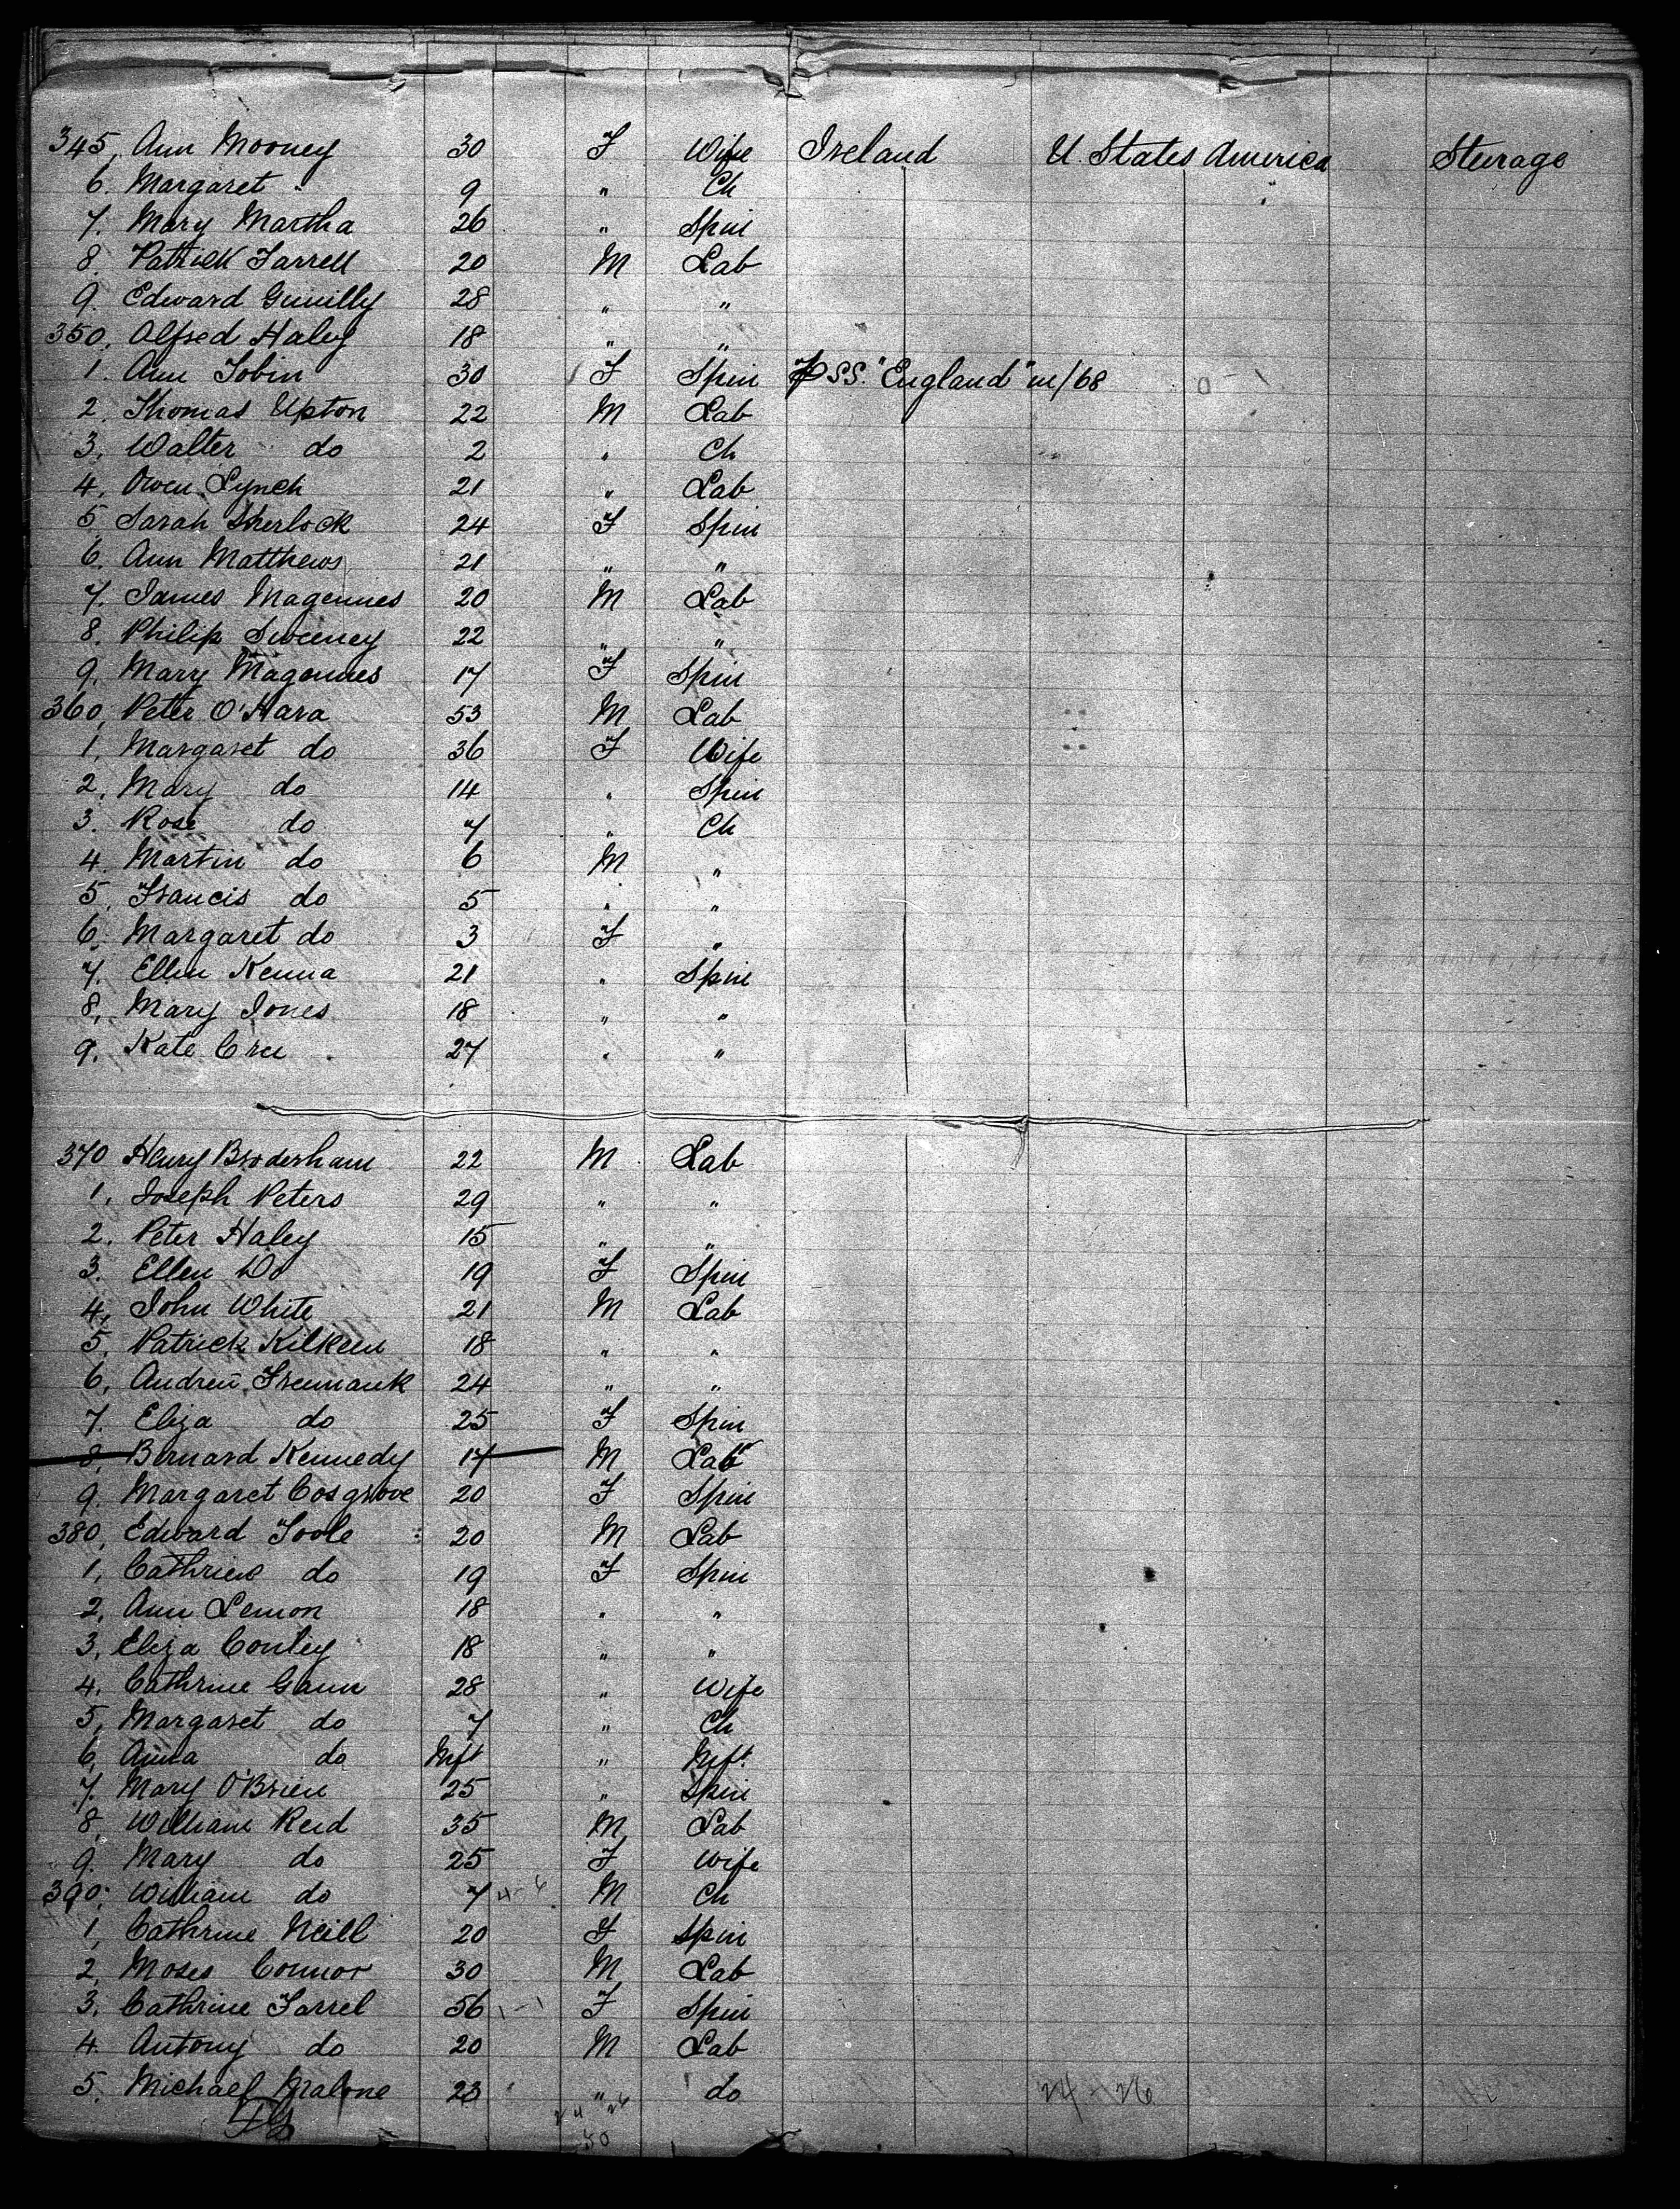 345, Ann Mooney 30 F Wife Ireland U. States America Sterage
6. Margaret " 9 " Ch
7. Mary Martha 26 " Spin
8. Patrick Farrell 20 M Lab
9. Edward 28 " "
350, Alfred Haley 18 " "
1. Ann Tobin 30 F Spin p SS. "England" 111/68
2. Thomas Upton 22 M Lab
3, Walter do 2 " Ch
4, Owen Lynch 21 " Lab
5 Sarah Sherlock 24 F Spin
6. Ann Matthews 21 " "
7. James Magennes 20 M Lab
8. Philip Sweeney 22 " "
9. Mary Magennes 17 F Spin
360, Peter O'Hara 53 M Lab
1, Margaret do 36 F Wife
2, Mary do 14 " Spin
3. Rose do 7 " Ch
4. Martin do 6 M "
5, Francis do 5 " "
6. Margaret do 3 F "
7. Ellen Kenna 21 " Spin
8, Mary Jones 18 " "
9. Kate 27 " "
370 Henry Broderham 22 M Lab
1, Joseph Peters 29 " "
2. Peter Haley 15 " "
3. Ellen Do 19 F Spin
4, John White 21 M Lab
5. Patrick Kilkeen 18 " "
6, Andrew 24 " "
7. Eliza do 25 F Spin
8, Bernard Kennedy 17 M Lab
9. Margaret Cosgrove 20 F Spin
380, Edward Toole 20 M Lab
1, Cathrine do 19 F Spin
2, Ann Lemon 18 " "
3, Eliza Conley 18 " "
4. Cathrine Gaun 28 " Wife
5, Margaret do 7 " Ch
6, Anna do Inft " Inft.
7. Mary O'Brien 25 " Spin
8, William Reid 35 M Lab
9. Mary do 25 F Wife
390, William do 7 4-6 M Ch
1, Cathrine Neill 20 F Spin
2, Moses Connor 30 M Lab
3. Cathrine Farrel 56 1-1 F Spin
4. Antony do 20 M Lab
5. Michael Malone 23 " do 24-26
24 26
50